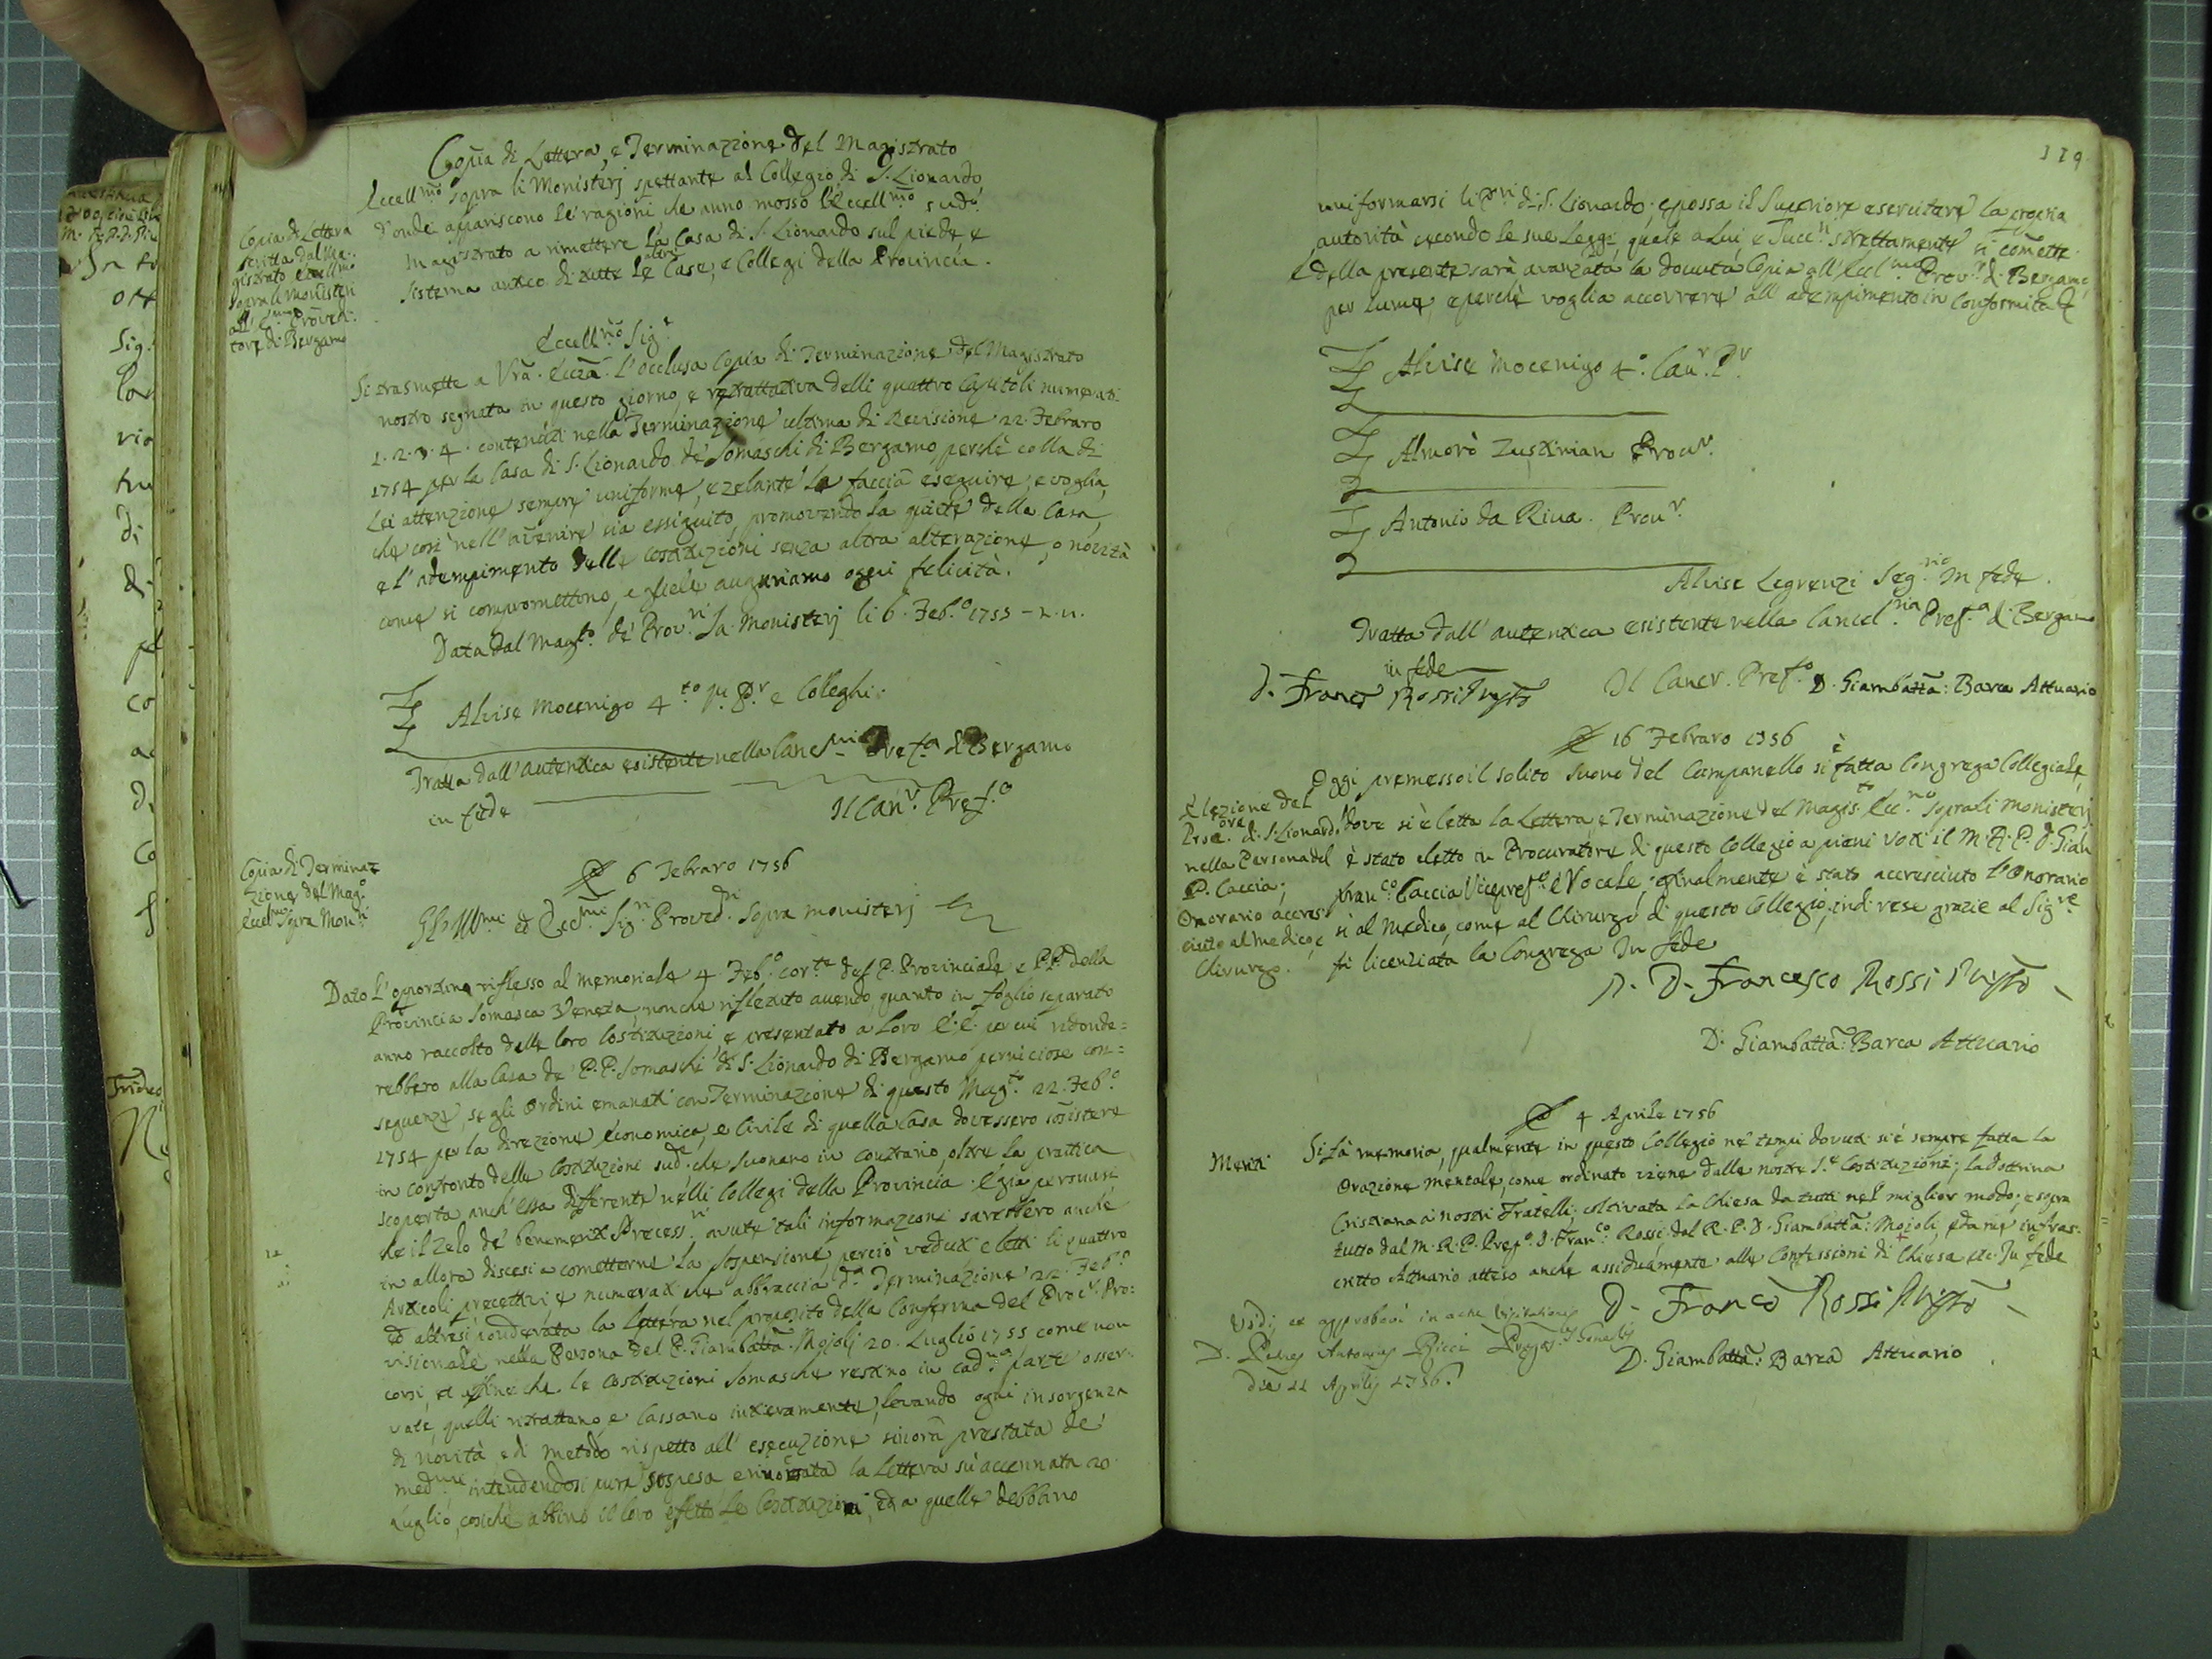 Copia di Lettera, e Terminazione del Magistrato
Eccell.mo sopra li Monisterj spettante al Collegio di S. Lionardo
d'onde appariscono le ragioni che anno mosso l'Eccell.mo sud.o
Magistrato a rimettere la Casa di S. Lionardo sul piede e
sistema antico di tutte le altre Case, e Collegi della Provincia.
Copia di Lettera
scritta dal Ma-
gistrato Eccell.mo
sopra li Monisterj
all' Ecc.mo Proved-
tore di Bergamo
Eccell.mo Sig.r
Si trasmette a Vrã. Eccza. l'occlusa Copia di Terminazione del Magistrato
nostro segnata in questo giorno e retrattativa delli quattro Capitoli numerati
1. 2. 3. 4. contenuti nella Terminazione ultima di Revisione 22. Febraro
1754 per la Casa di S. Lionardo de' Somaschi di Bergamo, perchè colla di
Lei attenzione sempre uniforme, e zelante la faccia eseguire, e voglia,
che così nell'avenire sia essiguito, promovendo la quiete della Casa,
e l'adempimento delle Costituzioni senza altra alterazione, o novità
come si compromettono, e gliele auguriamo ogni felicità.
Data dal Mag.to de' Prov.ri S.a Monisterj li 6. Feb.o 1755 - m.v.
Alvise Mocenigo 4.to P.r e Colleghi.
Tratta dall'autentica esistente nella Canc.ria Pref.a di Bergamo
in fede
Il Can.r Pref.o
Copia di Terminaz-
zione del Mag.o
Eccel.mo Sopra Mon.ri
6 Febraro 1756
Gl' Ill.mi et Ecc.mi Sig.ri Proved.ri Sopra Monisterj
Dato l'opportuno riflesso al memoriale 4. Feb.o cor.te del P. Provinciale e PP. della
Provincia Somasca Veneta, nonche riflettuto avendo, quanto in foglio separato
anno raccolto delle loro Costituzioni e presentato a Loro E.E. per cui ridonde=
rebbero alla Casa de' P.P. Somaschi di S. Lionardo di Bergamo perniciose con=
seguenze, se gli Ordini emanati con Terminazione di questo Mag.to 22. Feb.o
1754 per la direzione Economica, e Civile di quella Casa dovessero consistere
in confronto delle Costituzioni sud.e che suonano in contrario, oltre la prattica
scoperta anch'essa differente nelli Collegi della Provincia. E già persuasi
che il zelo de' benemeriti Precess.ri avute tali informazioni sarebbero anche
in allora discesi a cometterne la Sospensione, perciò veduti e letti li quattro
Articoli precettivi, e numerati che abbraccia d.a Terminazione 22. Feb.o
ed altresì ponderata la Lettera nel proposito della Conferma del Proc.r Pro:
visionale nella Persona del P. Giambatta. Mojoli 20. Luglio 1755 come non
corsi, et affine che le Costituzioni Somasche restino in cad.na parte osser-
vate, quelli ritrattano, e Cassano intieramente, levando ogni insorgenza
di novità, e di metodo rispetto all'esecuzione sinora prestata de'
med.mi intendendosi pure sospesa e rivocata la Lettera su' accennata 20
Luglio, cosichè abbino il loro effetto le Costituzioni, ed a quelle debbino
119
uniformarsi li P.ri di S. Lionardo, e possa il Superiore esercitare la propria
autorità secondo le sue Leggi, quale a Lui, e Succ.ri strettamente si comette.
E della presente sarà avanzata la dovuta Copia all'Eccl.mo Prov.r di Bergamo
per lume, e perchè voglia accorrere all'adempimento in conformità &
Alvise Mocenigo 4.o Cav.r P.r
Almorò Zustinian Proc.r
Antonio da Riva. Prov.r
Alvise Legrenzi Seg.rio in fede.
Tratta dall'autentica esistente nella Cancel.ria Pref.a di Bergamo
in fede
Il Cancr. Pref.o
D. Franc.o Rossi Pṕto
D. Giambatta: Barca Attuario
16 Febraro 1756
Oggi premesso il solito suono del Campanello si è fatta Congrega Collegiale,
dove si è letta la Lettera, e Terminazione del Magis.to Ecc.mo sopra li Monisterj
è stato eletto in Procuratore di questo Collegio a pieni Voti il M.R.P.D. Gian
Fran.co Caccia Viceprep.o e Vocale, e finalmente è stato accresciuto l'Onorario
sì al Medico, come al Chirurgo di questo Collegio, indi rese grazie al Sig.re
fù licenziata la Congrega In fede
Elezione del
Proc.ore di S. Lionardo
nella Persona del
P. Caccia;
Onorario accres-
ciuto al Medico, e
Chirurgo.
D. Francesco Rossi
D. Giambatta: Barca Attuario
4 Aprile 1756
Menti
Si fà memoria, qualmente in questo Collegio ne' tempi dovuti si è sempre fatta la
Orazione mentale, come ordinato viene dalle nostre S.e Costituzioni; la dottrina
Cristiana a nostri Fratelli: coltivata la Chiesa da tutti nel miglior modo; e sopra
tutto dal M.R.P. Prep.o D. Fran.co Rossi, dal R.P.D. Giambatta: Mojoli, e da me infras-
critto Attuario atteso anche assiduamente alle Confessioni di Chiesa etc. In fede
D. Franc.o Rossi
D. Giambatta: Barca Attuario.
Vidi, et approbavi in actu visitationis
D. Petrus Antonius Ricci Prepos. Gen.lis
die 21 Aprilis 1756.